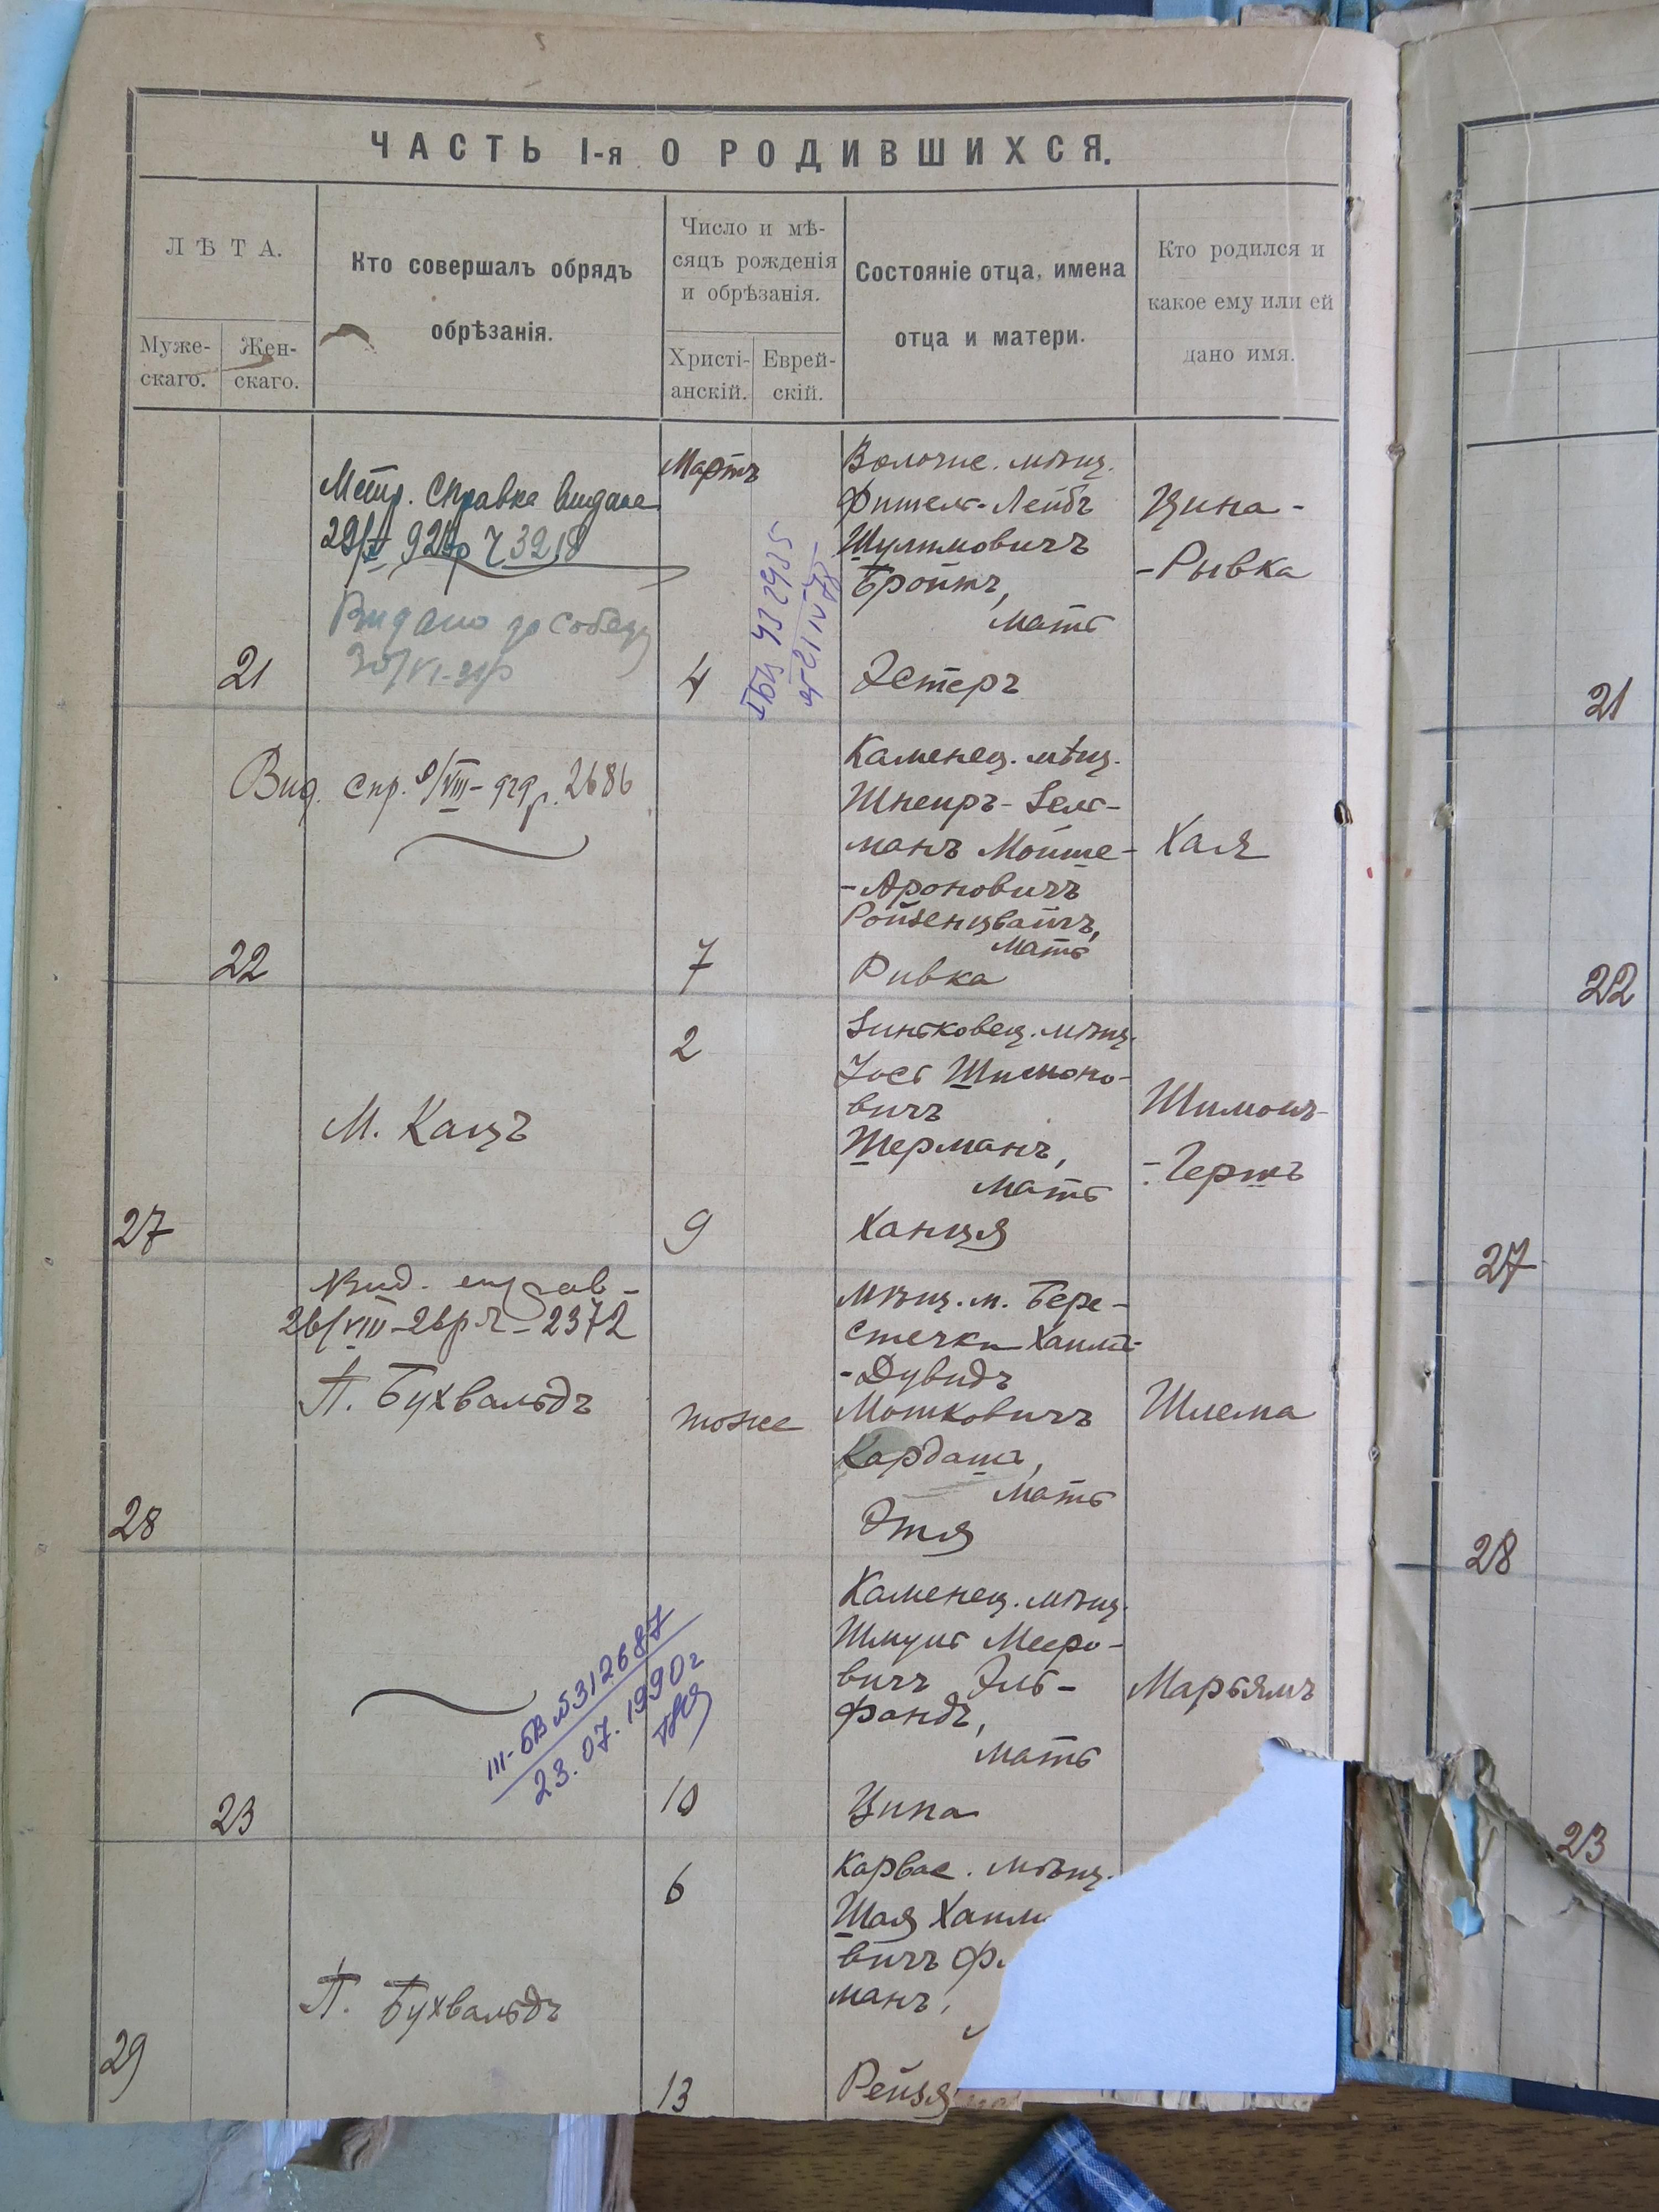 ЧАСТЬ I-я О РОДИВШИХСЯ.
ЛѢТА.
Муже-
скаго.
Жен-
скаго.
Кто совершалъ обрядъ
обрѣзанія.
Число и мѣ-
сяцъ рожденія
и обрѣзанія.
Христі-
анскій.
Еврей-
скій.
Состояніе отца, имена
отца и матери.
Кто родился и
какое ему или ей
дано имя.
21
Метр. Справка видана
Видано до собезу
Мартъ
4
Волочис. мѣщ.
Фишель-Лейбъ
Шулимовичъ
Бройтъ,
мать
Эстеръ
Цина-
-Рывка
21
22
Вид. спр. 9/VIII-929р. 2686
7
Каменец. мѣщ.
Шнеиръ-Зель-
манъ Мойше-
-Ароновичъ
Ройзенцвайгъ,
мать
Ривка
Хая
22
27
М. Кацъ
2
9
Зиньковец. мѣщ.
Іось Шимоно-
вичъ
Шерманъ,
мать
Ханця
Шимонъ-
-Гершъ
27
28
26/VIII-26р. ч-2372
П. Бухвальдъ
тоже
Мѣщ. м. Бере-
стечки Хаимъ-
-Дувидъ
Мошковичъ
Кардашъ,
мать
Этя
Шлема
28
23
III-БВ №312687
23.07.1990г
10
Каменец. мѣщ.
Шмуль Мееро-
вичъ Эль-
фандъ,
мать
Ципа
Марьямъ
23
29
П. Бухвальдъ
6
13
Карвас. мѣщ.
Шая Хаим
вичъ Ф
манъ,
Рейзя